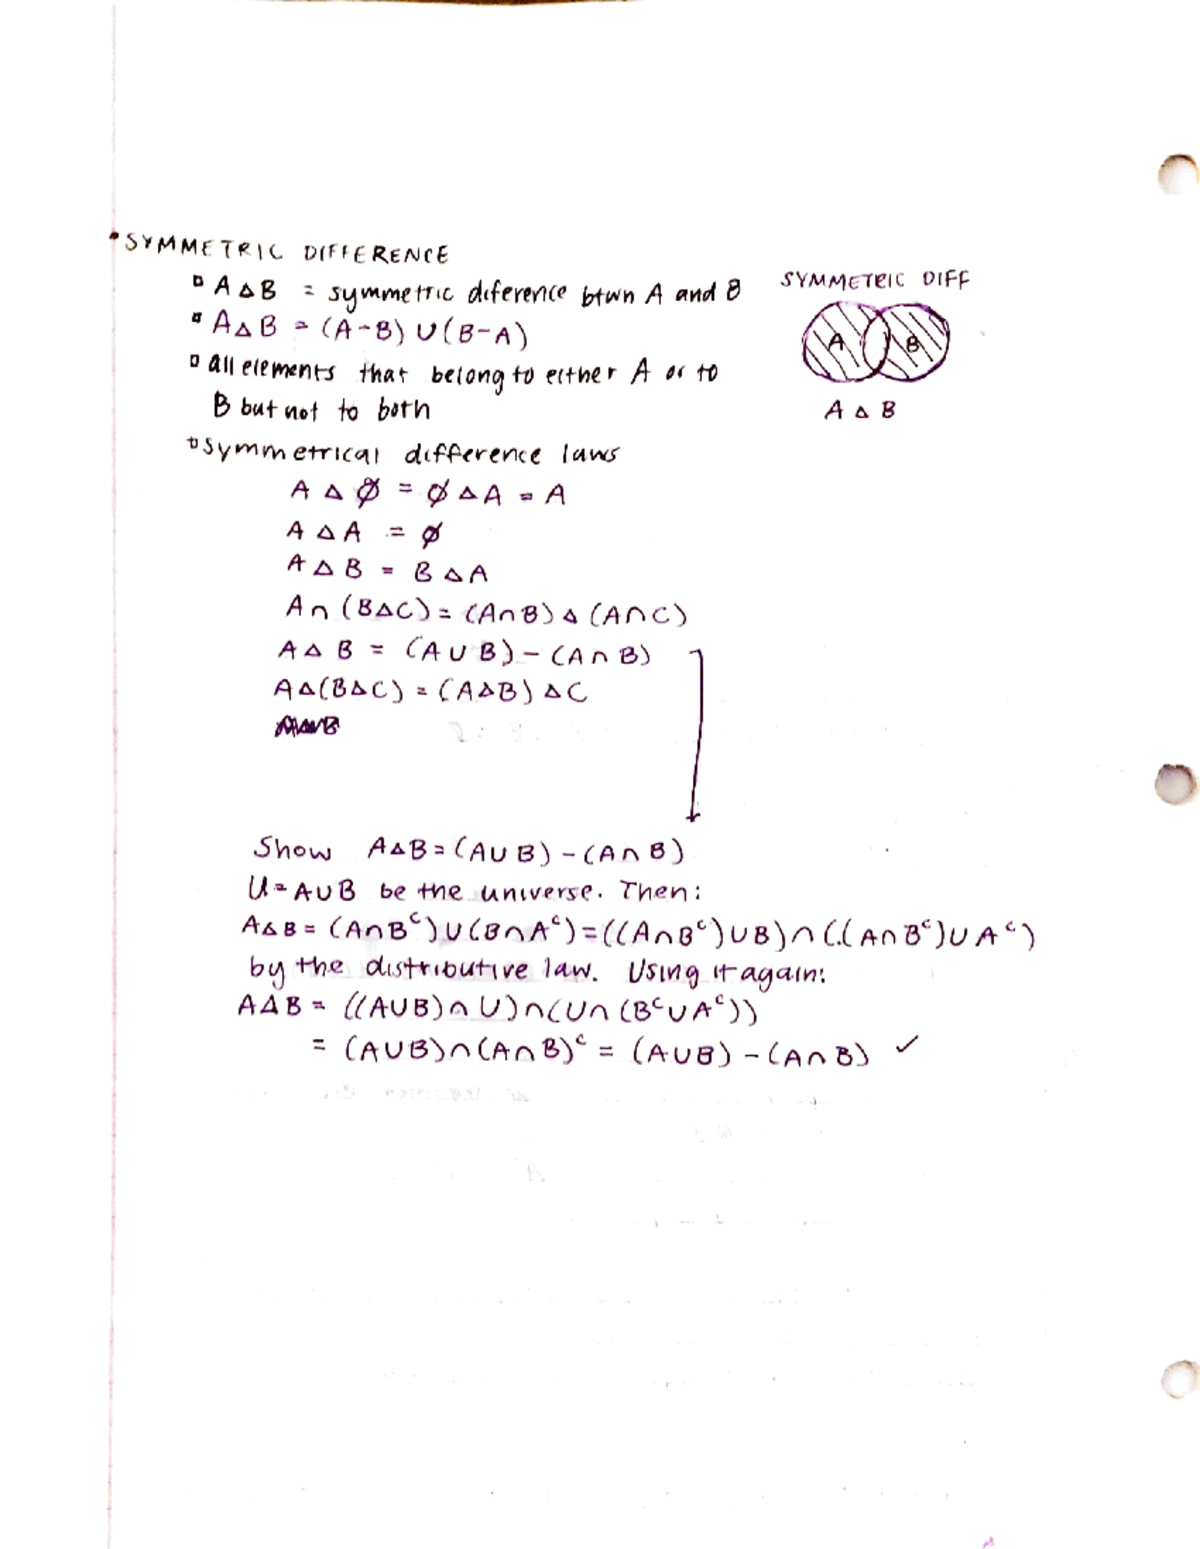 • SYMMETRIC DIFFERENCE
▫ A △ B = symmetric diference btwn A and B
▫ A △ B = (A-B) ∪ (B-A)
▫ all elements that belong to either A or to
B but not to both
▫ Symmetrical difference laws
A △ Ø = Ø △ A = A
A △ A = Ø
A △ B = B △ A
A ∩ (B△C) = (A∩B) △ (A∩C)
A △ B = (A ∪ B) - (A ∩ B)
A△(B△C) = (A△B) △C
SYMMETRIC DIFF
A B
A △ B
Show A△B = (A∪B) - (A∩B)
U = A∪B be the universe. Then:
A△B = (A∩Bᶜ)∪(B∩Aᶜ) = ((A∩Bᶜ)∪B)∩((A∩Bᶜ)∪Aᶜ)
by the distributive law. Using it again:
A△B = ((A∪B)∩U)∩(U∩(Bᶜ∪Aᶜ))
= (A∪B)∩(A∩B)ᶜ = (A∪B) - (A∩B) ✓